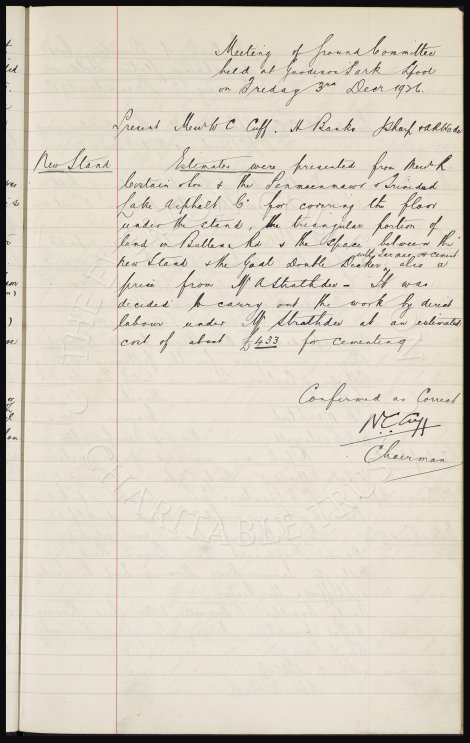 Meeting of Ground Committee
held at Goodison Park L'pool
on Friday 3rd Decr 1926.
Present Messrs W C Cuff. H Banks J Sharp &
New Stand Estimates were presented from Messrs R.
Costain & Son & the Penmaenmawr & Trinidad
Lake Asphalt Co for covering the floor
under the stand, the triangular portion of
land in Bullens Rd & the space between the
new Stand & the Goal Double Decker with Tarmac or cement also a
price from Mr A Strathdee — It was
decided to carry out the work by direct
labour under Mr Strathdee at an estimated
cost of about £433 for cementing
Confirmed as Correct
W. C. Cuff
Chairman
CHARITABLE TRUST